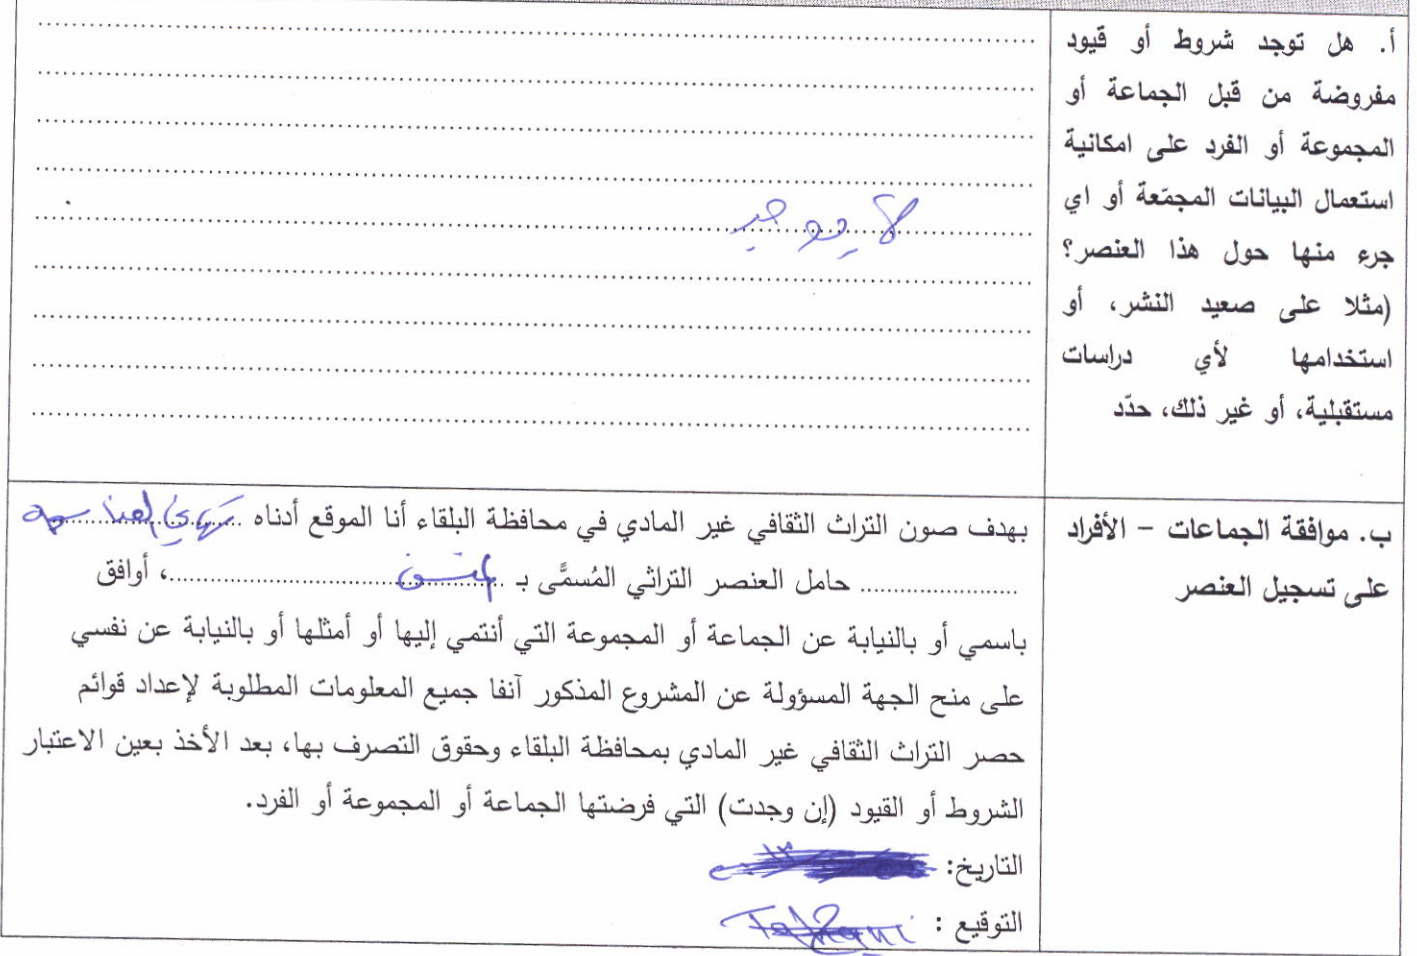 أ. هل توجد شروط أو قيود
مفروضة من قبل الجماعة أو
المجموعة أو الفرد على امكانية
استعمال البيانات المجمّعة أو اي
جرء منها حول هذا العنصر؟
(مثلا على صعيد النشر، أو
استخدامها لأي دراسات
مستقبلية، أو غير ذلك، حدّد
لا يوجد
ب. موافقة الجماعات - الأفراد
على تسجيل العنصر
بهدف صون التراث الثقافي غير المادي في محافظة البلقاء أنا الموقع أدناه
حامل العنصر التراثي المُسمَّى بـ ، أوافق
باسمي أو بالنيابة عن الجماعة أو المجموعة التي أنتمي إليها أو أمثلها أو بالنيابة عن نفسي
على منح الجهة المسؤولة عن المشروع المذكور آنفا جميع المعلومات المطلوبة لإعداد قوائم
حصر التراث الثقافي غير المادي بمحافظة البلقاء وحقوق التصرف بها، بعد الأخذ بعين الاعتبار
الشروط أو القيود (إن وجدت) التي فرضتها الجماعة أو المجموعة أو الفرد.
التاريخ:
التوقيع :